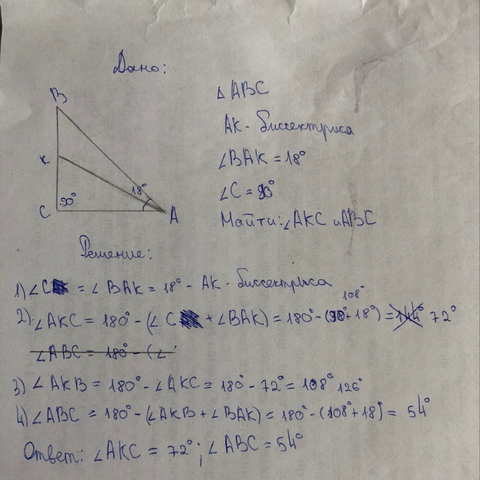 Дано:
B
K
C
90°
18°
A
△ ABC
AK - биссектриса
∠BAK = 18°
∠C = 90°
Найти: ∠AKC и ABC
Решение:
1) ∠C = ∠BAK = 18° - AK - биссектриса
108°
2) ∠AKC = 180° - (∠C + ∠BAK) = 180° - (90° + 18°) = 144° 72°
∠ABC = 180° - (∠
3) ∠AKB = 180° - ∠AKC = 180° - 72° = 108° 126°
4) ∠ABC = 180° - (∠AKB + ∠BAK) = 180° - (108° + 18°) = 54°
Ответ: ∠AKC = 72°; ∠ABC = 54°